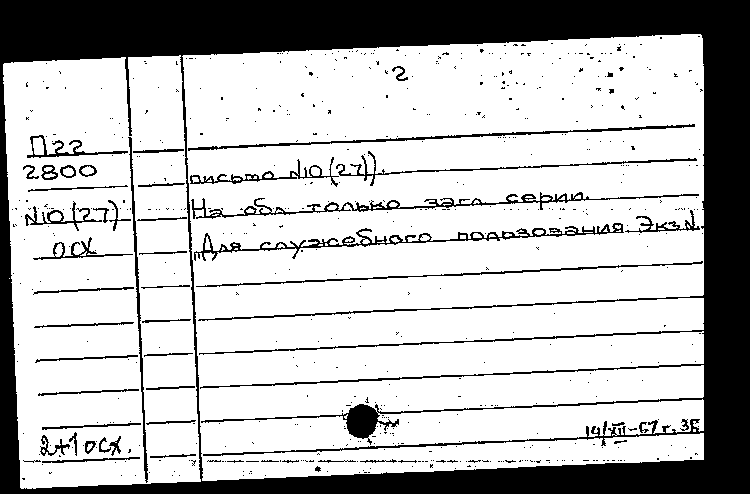 2
П22
2800
письмо №10(27)).
№10(27)
На обл только загл серии.
осх
"Для служебного пользования. Экз.№.
2+1 осх.
14/XII-67 г. ЗБ